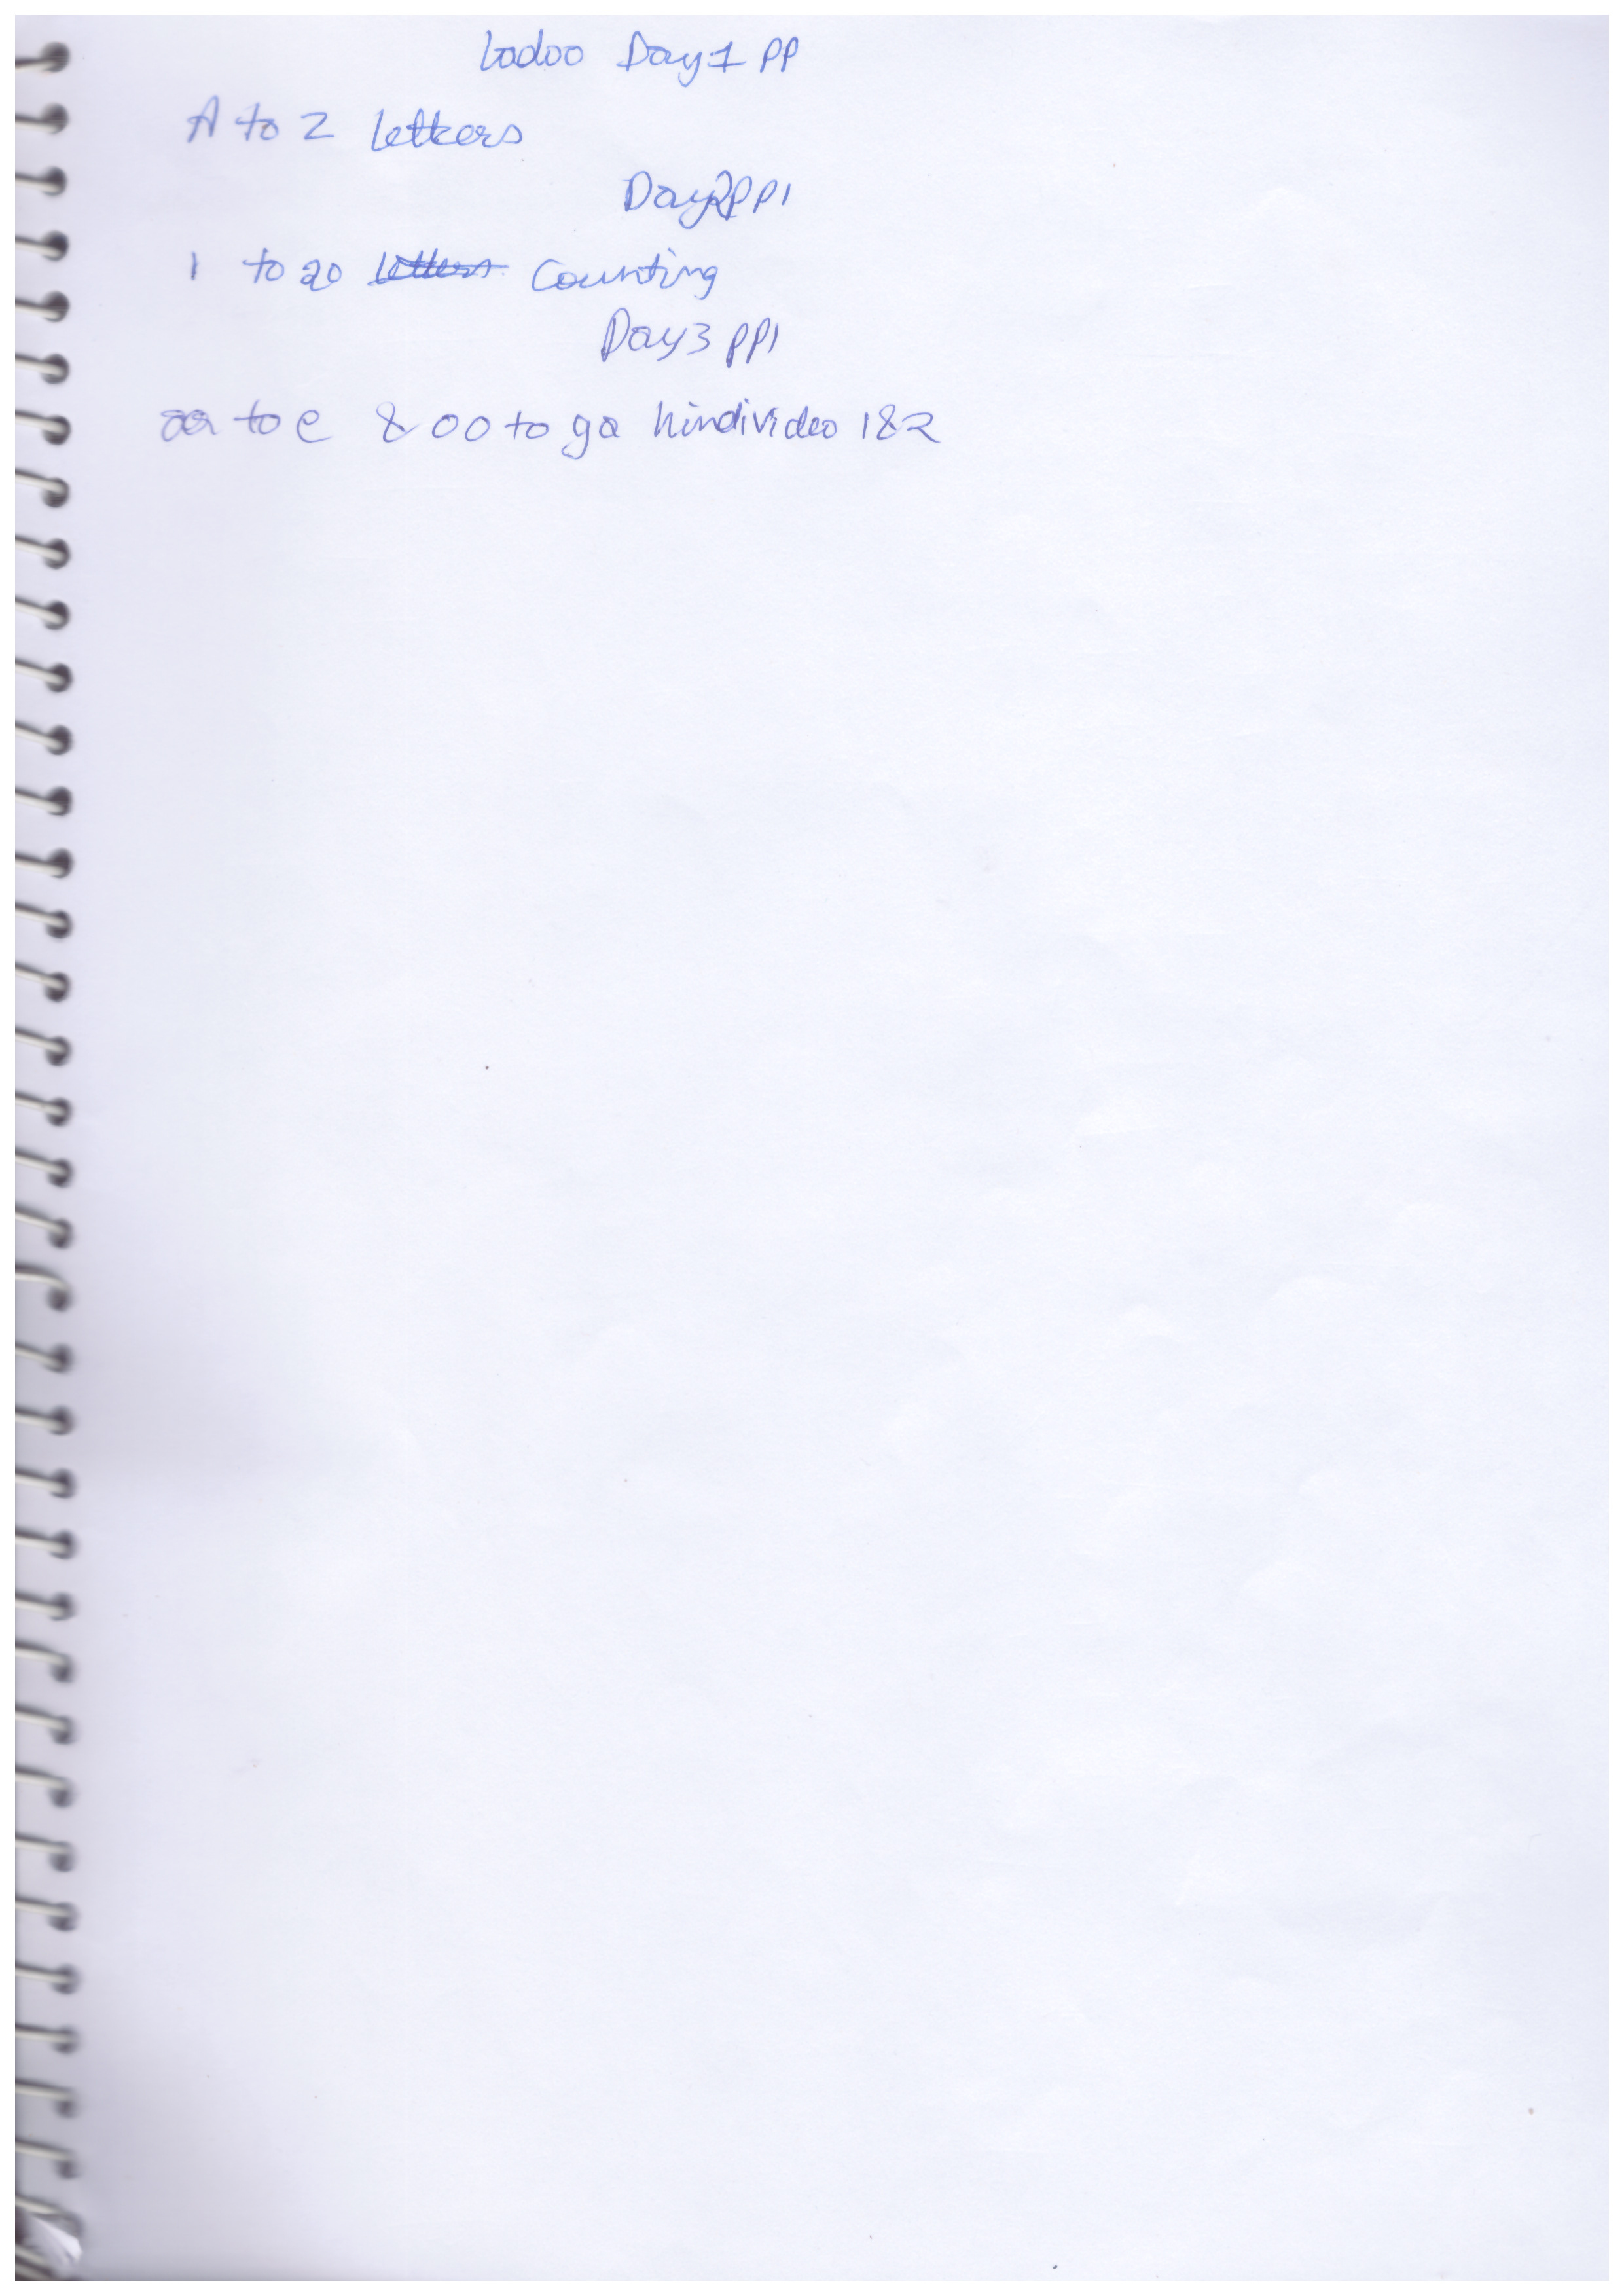 Ladoo Day 1 PP
A to Z letters
Day2PP1
1 to 20 letters Counting
Day3 PP1
aa to e & oo to ga hindi video 1&2